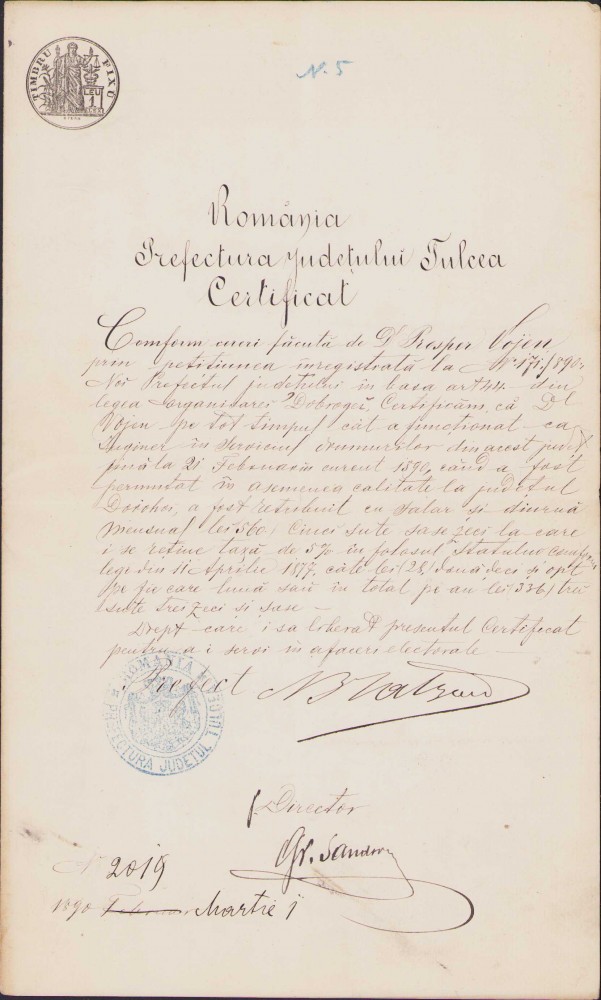 TIMBRU FIX
LEU
1
N. 5
România
Prefectura Județului Tulcea
Certificat
Comform cereri făcută de Dl Prosper Vojen
prin petitiunea inregistrată la No 171/890.
Noi Prefectul județului in basa art 44 din
legea organisarei Dobrogei, Certificăm, că Dl
Vojen pe tot timpul cât a functionat ca
Inginer in serviciul drumurilor din acest județ
până la 21 Februarie curent 1890, când a fost
permutat in asemenea calitate la județul
Dorohoi, a fost retribuit cu salar și diurnă
mensual lei 560, Cinci sute șase zeci la care
i se reține taxă de 5% in folosul Statului conform
lege din Aprilie 1877, câte lei (28) două deci și opt
pe fie care lună sau in total pe an lei 336) trei
sute treizeci și șase —
Drept care i sa liberat presentul Certificat
pentru a i servi in afaceri electorale —
Prefect
ROMANIA PREFECTURA JUDEȚUL TULCEA
p. Director
Gr. Sandrov
N 2019
1890 Februar Martie 1